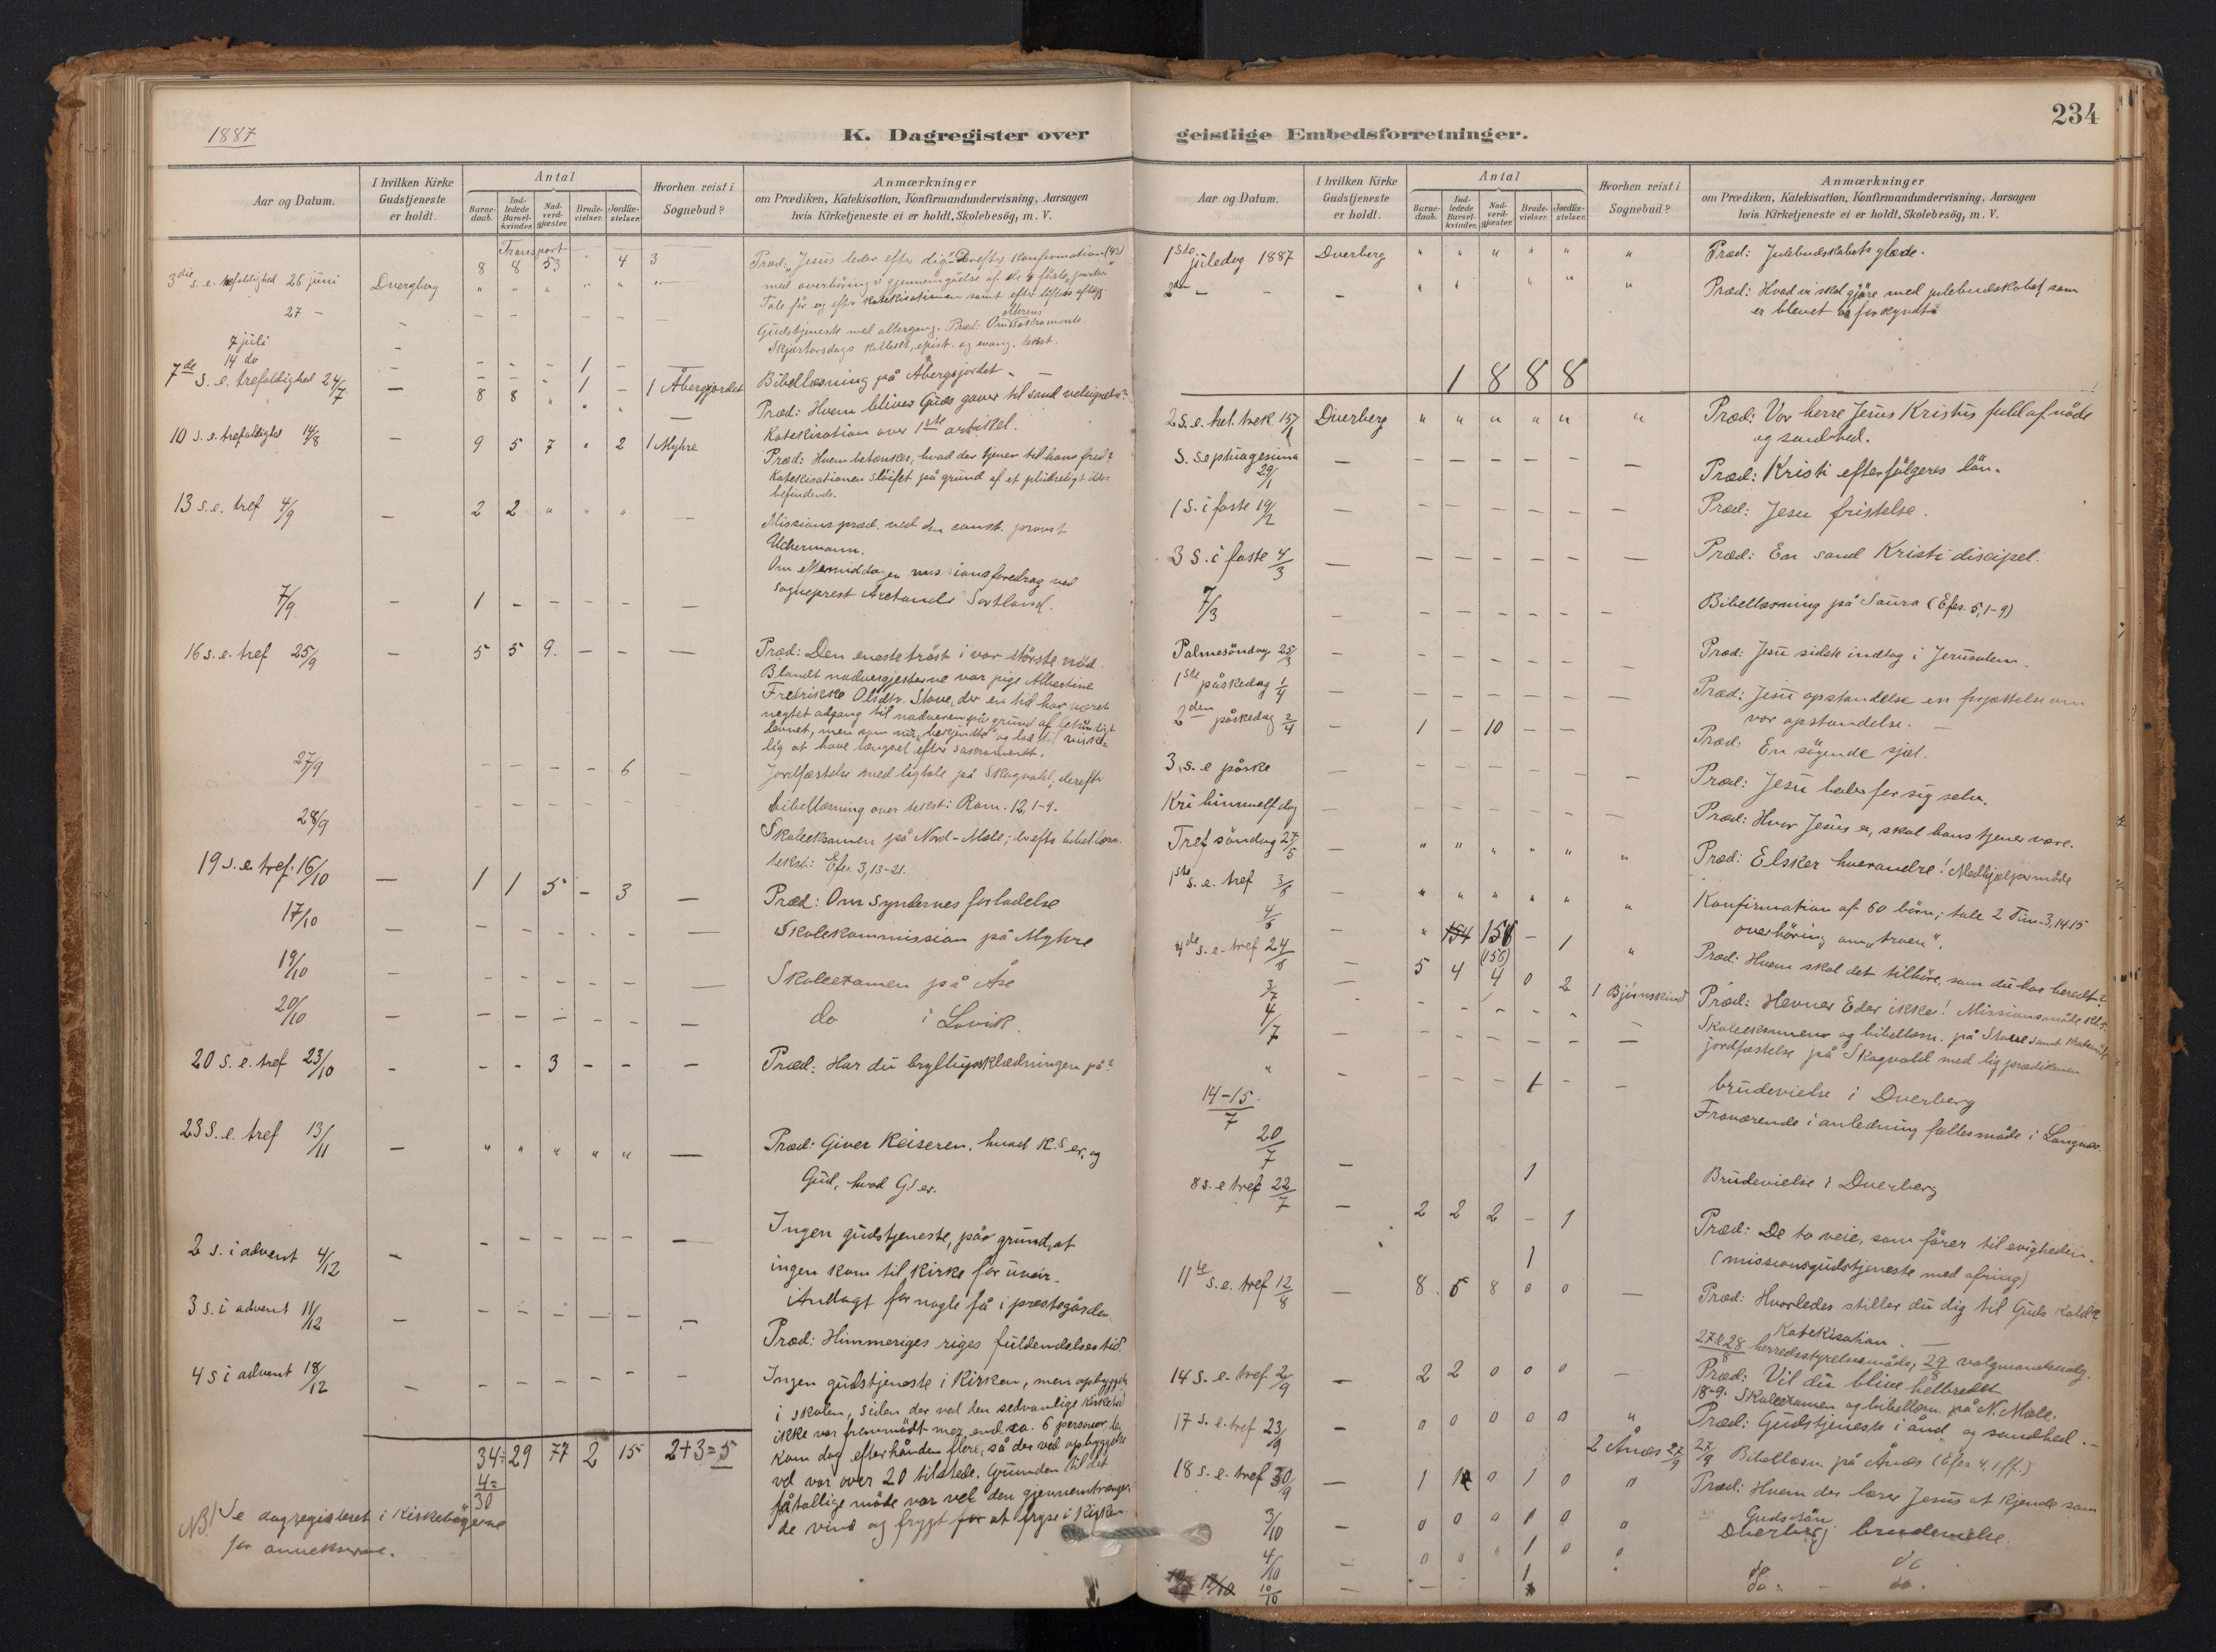 1887
K. Dagregister over
Aar og Datum.
I hvilken Kirke Gudstjeneste er holdt.
Antal
Barne-daab.
Ind-ledede Barsel-kvinder.
Nad-verd-gjæster.
Brude-vielser.
Jordfæ-stelser.
Hvorhen reist i Sognebud?
Anmærkninger
om Prædiken, Katekisation, Konfirmandundervisning, Aarsagen
hvis Kirketjeneste ei er holdt, Skolebesøg, m. V.
Transport
8 8 53 " 4 3
3die s. e. trefoldighed 26 juni Dvergberg " " " " " "
Præd: "Jesus leder efter dig". Derefter Konfirmation (43)
med overhøring i gjennemgåelse af de 4 første parter
Tale før og efter katekisationen samt efter løftets aflæg
27 - - - - - - -
Gudstjeneste med altergang. Præd: Om alterens sakramente.
Skjærtorsdags kollekt, epist. og evang. tekst.
7 juli -
14 do - - - - 1 -
Bibellæsning på Åbergsjordet -
7de s. e. trefoldighed 24/7 - 8 8 " 1 - 1 Åbergjordet
Præd: Hvem blives Guds gaver til sand velsignelse?
Katekisation over 1ste artikel.
10 s. e. trefoldighed 14/8 - 9 5 7 " 2 1 Myhre
Præd: Hvem betænker, hvad der tjener til hans fred?
Katekisationen sløifet på grund af et pludseligt ilde-
befindende.
13 s. e. tref 4/9 - 2 2 " " " -
Missionspræd. ved den const. provst
Uchermann.
Om eftermiddagen missionsforedrag ved
sogneprest Arctander Sortland.
7/9 - 1 - - - - -
16 s. e. tref 25/9 - 5 5 9. - - -
Præd: Den eneste trøst i vor største nød.
Blandt nadvergjesterne var pige Albertine
Fredrikke Olsdtr. Stave, der en tid har været
negtet adgang til nadveren på grund af
levnet, men som nu "bekjendte" og lod til virke-
lig at have længsel efter sacramentet.
27/9 - - - - 6 -
Jordfæstelse med ligtale på Skogvold, derefter
bibellæsning over tekst: Rom. 12, 1-9.
28/9 - - - - -
Skoleeksamen på Nord-Mæle; derefter bibellæsn.
tekst: Efes. 3, 13-21.
19 s. e. tref. 16/10 - 1 1 5 - 3 -
Præd: Om Syndernes forladelse
17/10 - - - - - - -
Skolekommission på Myhre
19/10 - - - - - - -
Skoleexamen på Åse
20/10 - - - - - - -
do i Lovik.
20 s. e. tref 23/10 - - - 3 - - -
Præd: Har du bryllupsklædningen på?
23 S. e. tref 13/11 - " " " " " -
Præd: Giver Keiseren, hvad K.s er, og
Gud, hvad G.s er.
2 s. i advent 4/12 - - - - - - -
Ingen gudstjeneste, på grund, at
ingen kom til kirke for uveir.
Andagt for nogle få i præstegården.
3 s. i advent 11/12 - - - - - - -
Præd: Himmeriges riges fuldendelses tid.
4 s i advent 18/12 - - - - - - -
Ingen gudstjeneste i kirken, men opbyggelse
i skolen, siden der ved den sedvanlige kirketid
ikke var fremmødt mer end ca. 6 personer, der
kom dog efterhånden flere, så der ved opbyggelse
vel var over 20 tilstede. Grunden til det
fåtallige møde var vel den gjennemtrængen-
de vind og frygt for at fryse i kirken.
34÷ 29 77 2 15 2+3=5
4=
30
NB! Se dagregisteret i Kirkebøgerne
for annekserne.
234
geistlige Embedsforretninger.
Aar og Datum.
I hvilken Kirke Gudstjeneste er holdt.
Antal
Barne-daab.
Ind-ledede Barsel-kvinder.
Nad-verd-gjæster.
Brude-vielser.
Jordfæ-stelser.
Hvorhen reist i Sognebud?
Anmærkninger
om Prædiken, Katekisation, Konfirmandundervisning, Aarsagen
hvis Kirketjeneste ei er holdt, Skolebesøg, m. V.
1ste juledag 1887 Dverberg " " " " " "
Præd: Julebudskabets glæde.
2den - - - " " " " "
Præd: Hvad vi skal gjøre med julebudskabet, som
er blevet os forkyndt.
1888
2 s. e. hel. trek. 15/1 Dverberg " " " " " "
Præd: Vor herre Jesus Kristus fuld af nåde
og sandhed.
S. septuagesima 29/1 - - - - - - -
Præd: Kristi efterfølgeres løn.
1 S. i faste 19/2 - - - - - - -
Præd: Jesu fristelse.
3 S. i faste 4/3 - - - - - - -
Præd: En sand Kristi discipel.
7/3 - - - - - - -
Bibellæsning på Saura (Efes. 5, 1-9)
Palmesøndag 25/3 - - - - - - -
Præd: Jesu sidste indtog i Jerusalem.
1ste påskedag 1/4 - - - - - - -
Præd: Jesu opstandelse en forjættelse om
vor opstandelse. -
2den påskedag 2/4 - 1 - 10 - - -
Præd: En søgende sjæl.
3, s. e påske - - - - - - -
Præd: Jesu beder for sig selv.
Kri himmelf. dag - - - - - - -
Præd: Hvor Jesus er, skal hans tjener være.
Tref søndag 27/5 - " " " " " "
Præd: Elsker hverandre! Medhjælpermøde
1ste s. e. tref 3/6 - " " " " " "
Konfirmation af 60 børn; tale 2 Tim. 3, 14.15
overhøring om "troen".
4/6 - " 154 156 - 1 "
(156)
Præd: Hvem skal det tilhøre, som du har beredt?
4de s. e. tref 24/6 - 5 4 4 0 2 1 Bjørnskind
Præd: Hevner Eder ikke! Missionsmøde kl. 5.
3/7 - - - - - - -
Skoleeksamen og bibellæsn. på Stave samt
4/7 - - - - - - -
jordfæstelse på Skogvold med ligprædiken
" - - - - 1 - -
brudevielse i Dverberg
14-15/7
Fraværende i anledning fællesmøde i Langnes.
20/7 - 1
Brudevielse i Dverberg
8 s. e tref 22/7 - 2 2 2 - 1
Præd: De to veie, som fører til evigheden.
(missionsgudstjeneste med ofring)
1
11te s. e. tref 12/8 - 8 5 8 0 0 -
Præd: Hvorledes stiller du dig til Guds kald?
Katekisation. -
27 & 28/8 herredsstyrelsemøde, 29/8 valgmandsvalg.
14 S. e. tref. 2/9 - 2 2 0 0 0 -
Præd: Vil du blive helbredet
18-9. Skoleexamen og bibellæsn. på N. Mæle.
17 s. e. tref 23/9 - 0 0 0 0 0 "
Præd: Gudstjeneste i ånd og sandhed. -
2 Ånes 27/9
27/9 Bibellæsn. på Ånes (Efes 4. 1 ff.)
18 s. e. tref 30/9 - 1 1 0 1 0 0
Præd: Hvem der lærer Jesus at kjende som
Guds søn
3/10 - 0 0 0 1 0 0
Dverberg brudevielse
4/10 - 0 0 0 1 0 0
do do
10/10 - - 1
do. - do.